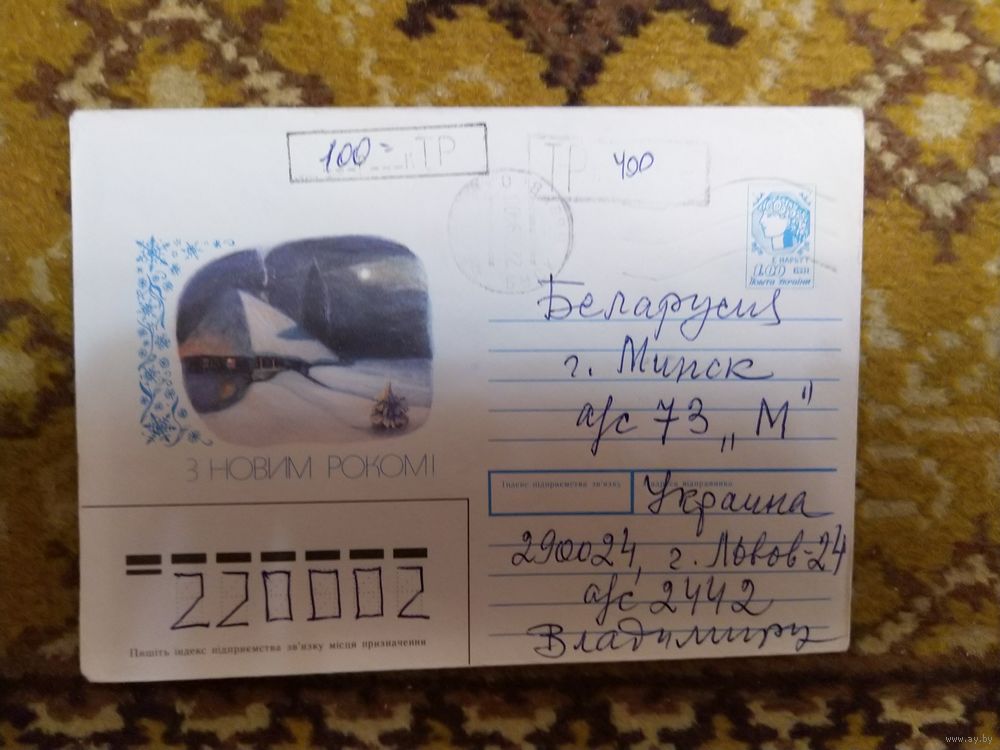 100= ТР
ТР 400
1.00 КБП
ПОШТА УКРАЇНИ
Беларусия
г. Минск
а/с 73 „М"
З НОВИМ РОКОМ!
Індекс підприємства зв'язку
відправника
Украина
290024, г. Львов-24
а/с 2442
Владимиру
220002
Пишіть індекс підприємства зв'язку місця призначення
www.ay.by